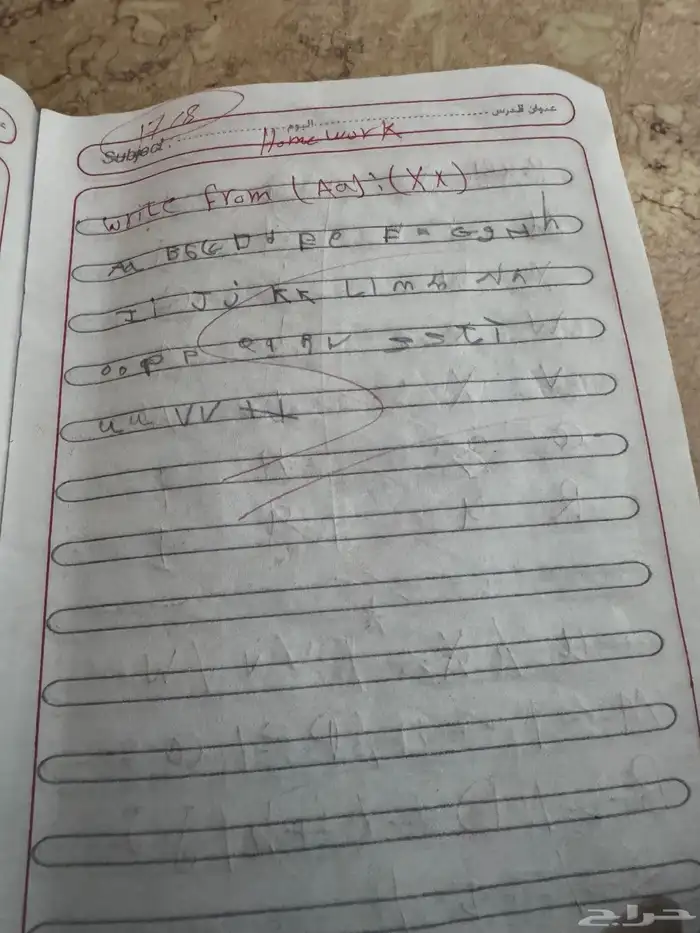 عنوان الدرس
اليوم
17/8
Subject:
Home work
write from (Aa): (Xx)
Aa B b C c D d E e F G g H h
I i J j K k L l m m N n
o o P P q r s s T t
u u V V
حراج